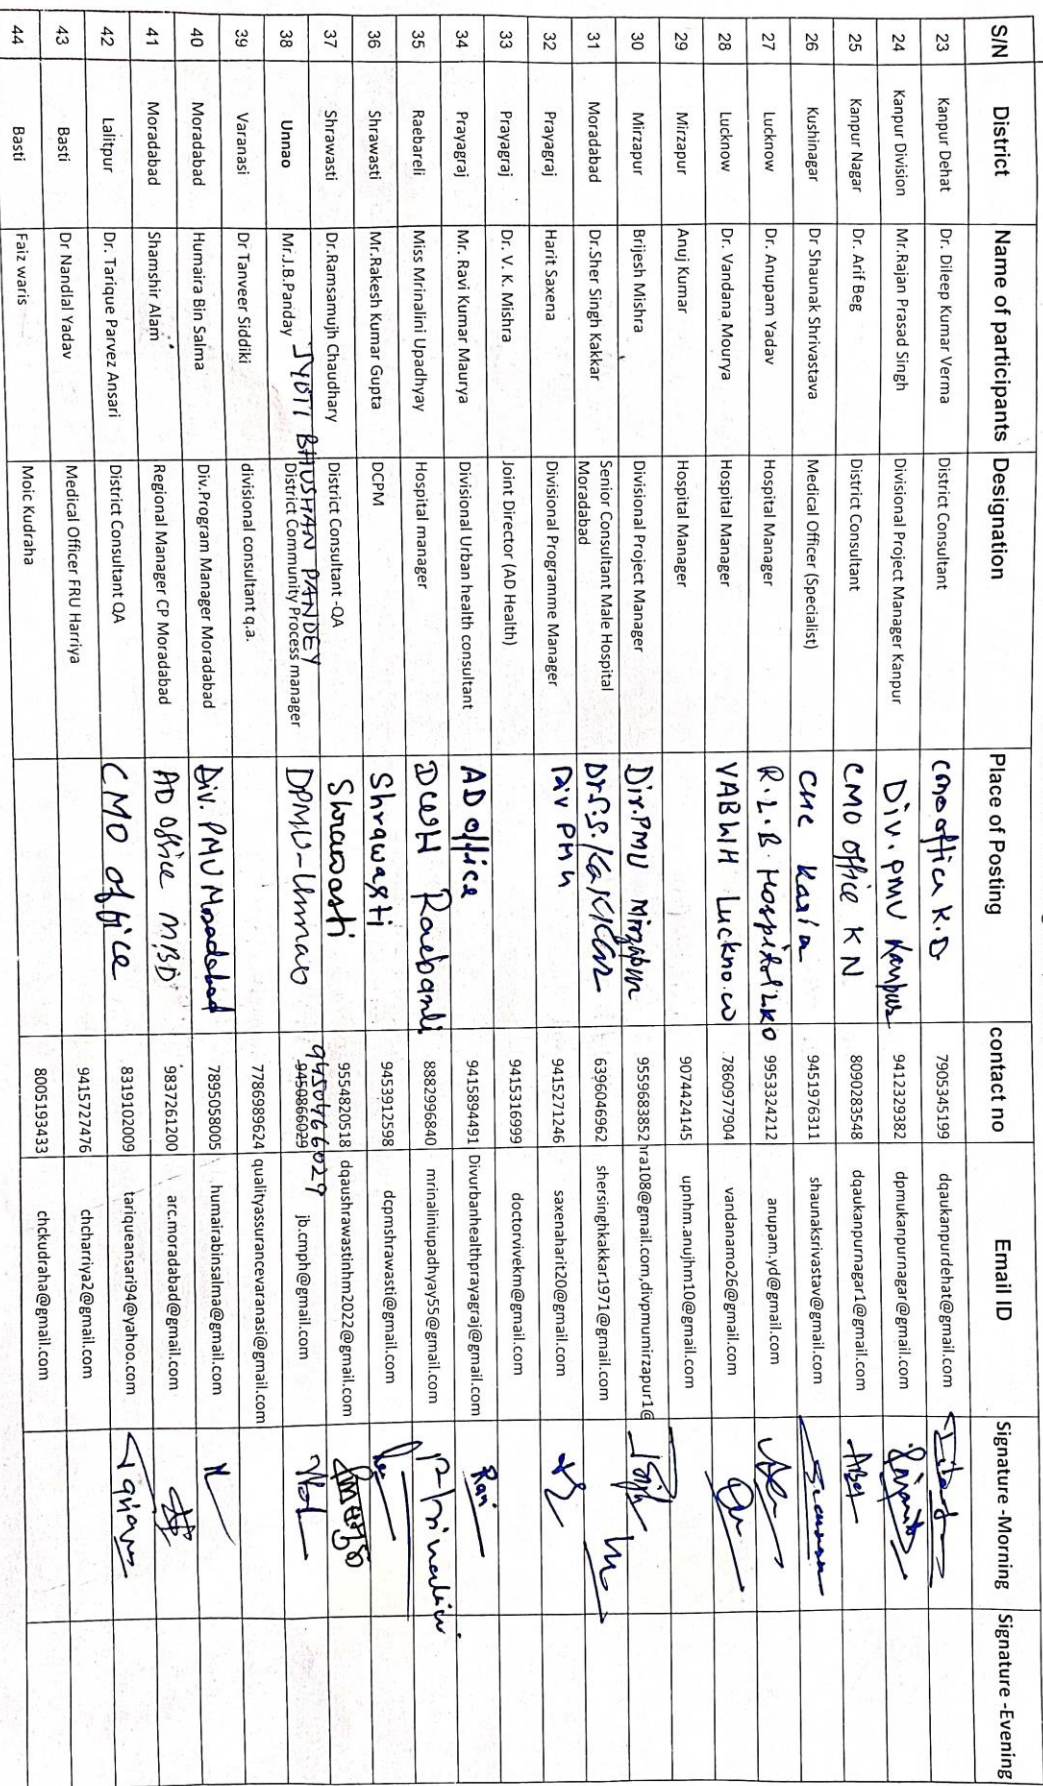 S/N District Name of participants Designation Place of Posting contact no Email ID Signature -Morning Signature -Evening
23 Kanpur Dehat Dr. Dileep Kumar Verma District Consultant CMO office K.D 7905345199 dqaukanpurdehat@gmail.com
24 Kanpur Division Mr.Rajan Prasad Singh Divisional Project Manager Kanpur Div. PMU Kanpur 9412329382 dpmukanpurnagar@gmail.com
25 Kanpur Nagar Dr. Arif Beg District Consultant CMO office K N 8090283548 dqaukanpurnagar1@gmail.com
26 Kushinagar Dr Shaunak Shrivastava Medical Officer (Specialist) CHC Kasia 9451976311 shaunaksrivastav@gmail.com
27 Lucknow Dr. Anupam Yadav Hospital Manager R.L.B. Hospital LKO 9953324212 anupam.yd@gmail.com
28 Lucknow Dr. Vandana Mourya Hospital Manager VABWH Lucknow 7860977904 vandanamo26@gmail.com
29 Mirzapur Anuj Kumar Hospital Manager 9074424145 upnhm.anujhm10@gmail.com
30 Mirzapur Brijesh Mishra Divisional Project Manager Div.PMU Mirzapur 9559683852 hra108@gmail.com,divpmumirzapur1@
31 Moradabad Dr.Sher Singh Kakkar Senior Consultant Male Hospital Moradabad Dr.S.S.Kakkar 6396046962 shersinghkakkar1971@gmail.com
32 Prayagraj Harit Saxena Divisional Programme Manager Div PMU 9415271246 saxenaharit20@gmail.com
33 Prayagraj Dr. V. K. Mishra Joint Director (AD Health) 9415316999 doctorvivekm@gmail.com
34 Prayagraj Mr. Ravi Kumar Maurya Divisional Urban health consultant AD office 9415894491 Divurbanhealthprayagraj@gmail.com Ravi
35 Raebareli Miss Mrinalini Upadhyay Hospital manager DCWH Raebareli 8882996840 mrinaliniupadhyay55@gmail.com Mrinalini
36 Shrawasti Mr.Rakesh Kumar Gupta DCPM Shrawasti 9453912598 dcpmshrawasti@gmail.com
37 Shrawasti Dr.Ramsamujh Chaudhary District Consultant -QA Shrawasti 9554820518 dqaushrawastinhm2022@gmail.com
JYOTI BHUSHAN PANDEY 9450466029
38 Unnao Mr.J.B.Panday District Community Process manager DPMU-Unnao 9450866029 jb.cmph@gmail.com
39 Varanasi Dr Tanveer Siddiki divisional consultant q.a. 7786989624 qualityassurancevaranasi@gmail.com
40 Moradabad Humaira Bin Salma Div.Program Manager Moradabad Div. PMU Moradabad 7895058005 humairabinsalma@gmail.com
41 Moradabad Shamshir Alam Regional Manager CP Moradabad AD Office MBD 9837261200 arc.moradabad@gmail.com
42 Lalitpur Dr. Tarique Parvez Ansari District Consultant QA CMO office 8319102009 tariqueansari94@yahoo.com Tarique
43 Basti Dr Nandlal Yadav Medical Officer FRU Harriya 9415727476 chcharriya2@gmail.com
44 Basti Faiz waris Moic Kudraha 8005193433 chckudraha@gmail.com